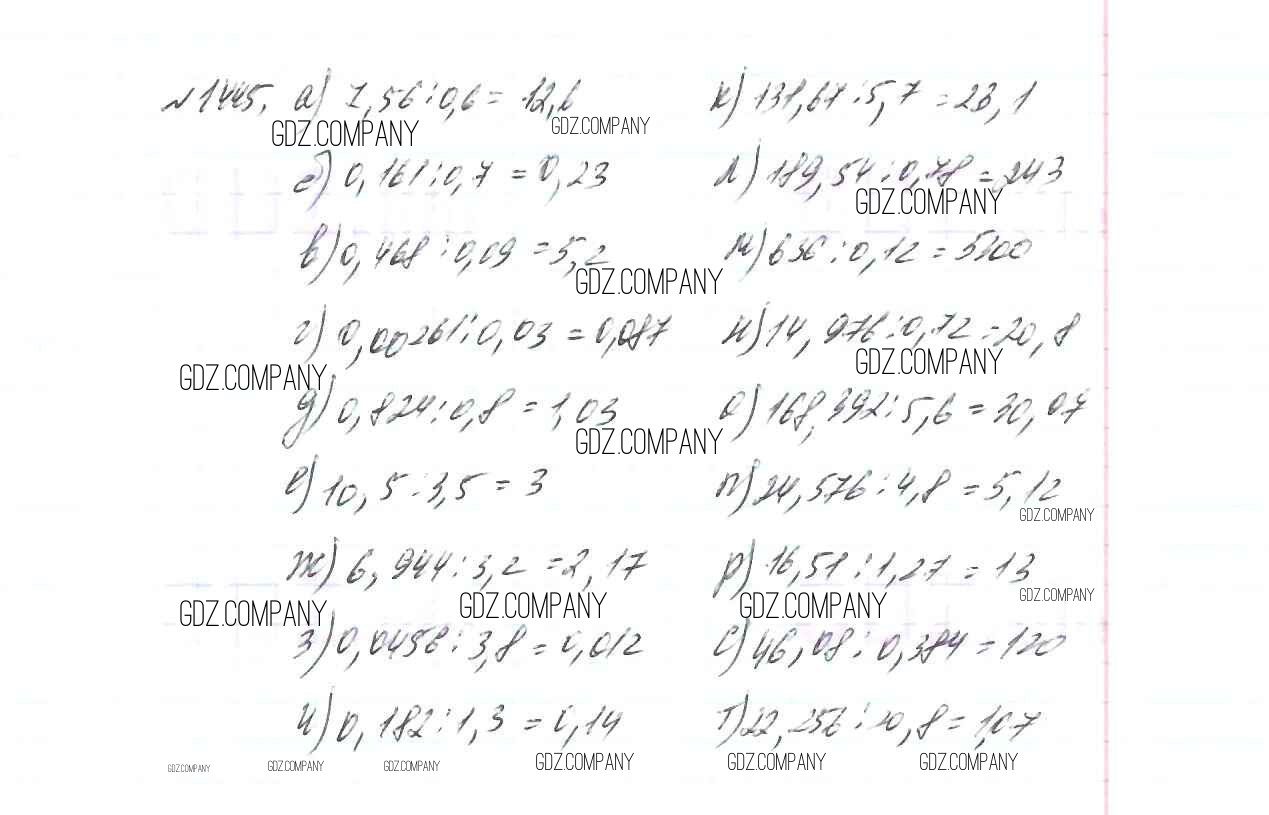 №1445. а) 7,56:0,6=12,6
GDZ.COMPANY
GDZ.COMPANY
б) 0,161:0,7=0,23
в) 0,468:0,09=5,2
GDZ.COMPANY
г) 0,00261:0,03=0,087
GDZ.COMPANY
д) 0,824:0,8=1,03
GDZ.COMPANY
е) 10,5:3,5=3
ж) 6,944:3,2=2,17
GDZ.COMPANY
GDZ.COMPANY
з) 0,0456:3,8=0,012
и) 0,182:1,3=0,14
к) 131,67:5,7=23,1
л) 189,54:0,78=243
GDZ.COMPANY
м) 636:0,12=5300
н) 14,976:0,72=20,8
GDZ.COMPANY
о) 168,392:5,6=30,07
п) 24,576:4,8=5,12
GDZ.COMPANY
р) 16,51:1,27=13
GDZ.COMPANY
GDZ.COMPANY
с) 46,08:0,384=120
т) 22,256:20,8=1,07
GDZ.COMPANY
GDZ.COMPANY
GDZ.COMPANY
GDZ.COMPANY
GDZ.COMPANY
GDZ.COMPANY